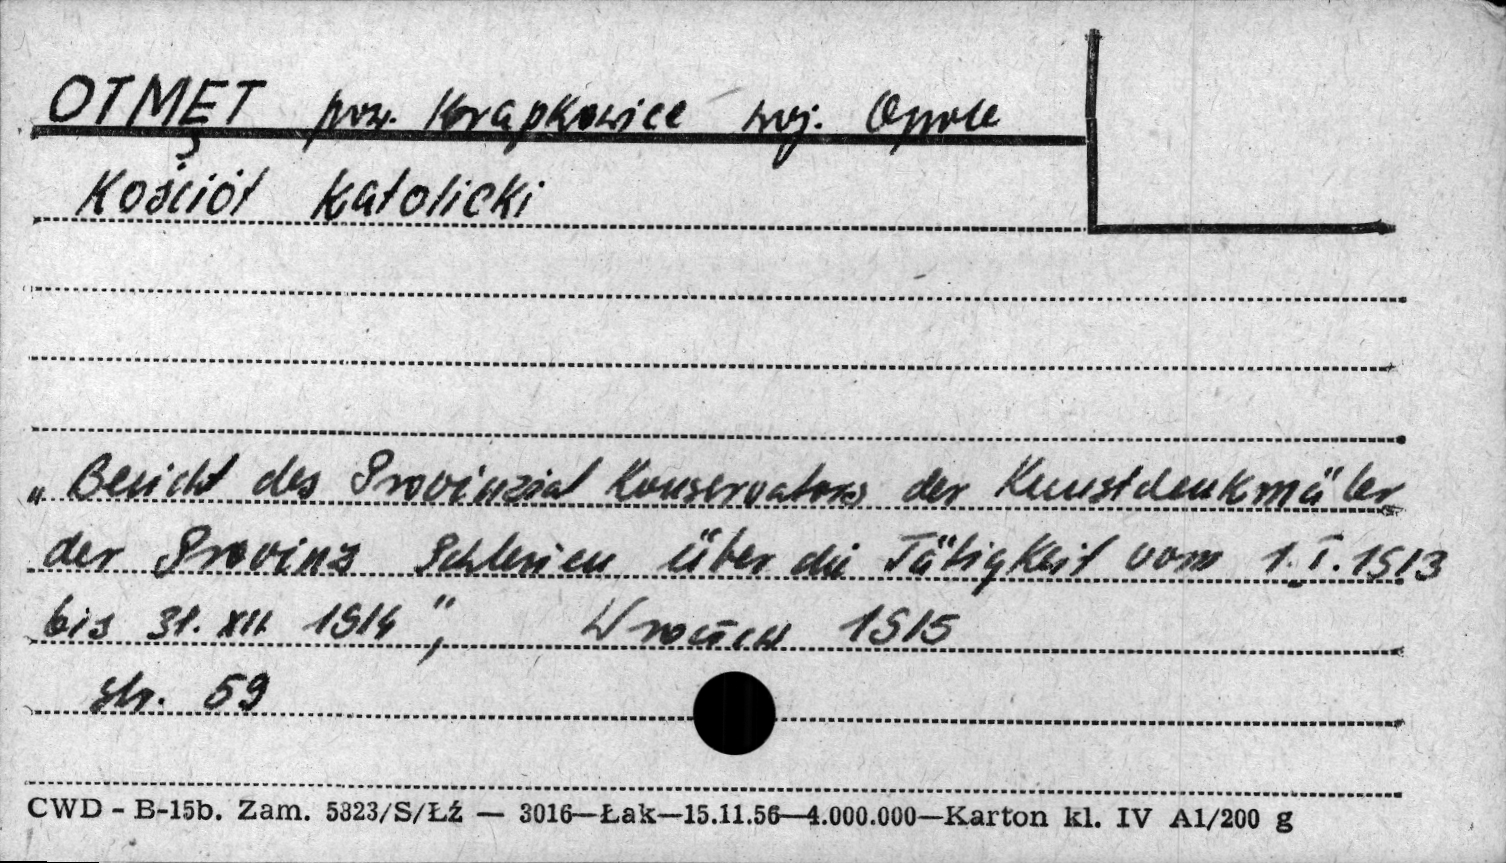 OTMĘT pow. Krapkowice woj. Opole
Kościół Katolicki
„Bericht des Provinzial Konservators der Kunstdenkmäler
der Provinz Schlesien über die Tätigkeit vom 1.I.1913
bis 31.XII.1914", Wrocław 1915
str. 59
CWD - B-15b. Zam. 5823/S/Łź — 3016—Łak—15.11.56—4.000.000—Karton kl. IV A1/200 g